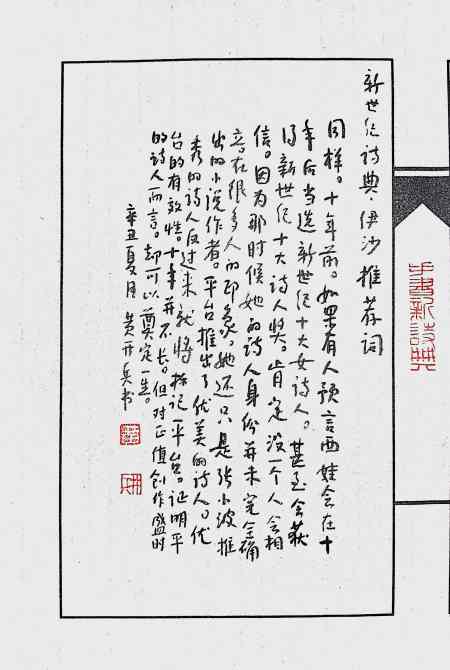 新世纪诗典·伊沙推荐词
同样。十年前。如果有人预言西娃会在十
年后当选新世纪十大女诗人。甚至会获
得新世纪十大诗人奖。肯定没一个人会相
信。因为那时候她的诗人身份并未完全确
立。在很多人的印象。她还只是张小波推
出的小说作者。平台推出了优美的诗人。优
秀的诗人反过来就将标记平台。证明平
台的有效性。十年并不长。但对正值创作盛时
的诗人而言。却可以奠定一生。
辛丑夏月 黄开兵书
手书新诗典